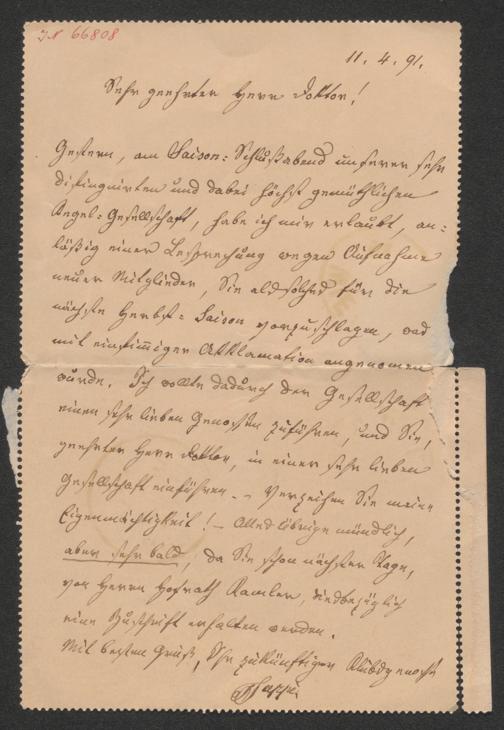 IN 66808
11. 4. 91.
Sehr geehrter Herr Doktor!
Gestern, am Saison-Schlußabend unserer sehr
distinguirten und dabei höchst gemüthlichen
Kegel-Gesellschaft, habe ich mir erlaubt, an-
läßig einer Besprechung wegen Aufnahme
neuer Mitglieder, Sie als solches für die
nächste Herbst-Saison vorzuschlagen, was
mit einstimiger Akklamation angenomen
wurde. Ich wollte dadurch der Gesellschaft
einen sehr lieben Genossen zuführen, und Sie,
geehrter Herr Doktor, in einer sehr lieben
Gesellschaft einführen. – Verzeihen Sie meine
Eigenmächtigkeit! – Alles Übrige mündlich,
aber sehr bald, da Sie schon nächster Tage,
von Herrn Hofrath Ramler, diesbezüglich
eine Zuschrift erhalten werden.
Mit besten Gruß, Ihr zukünftiger Klubgenosse